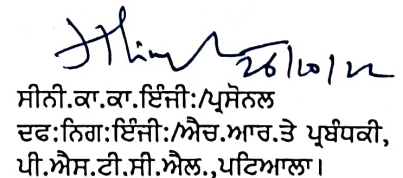 26/10/22
ਸੀਨੀ.ਕਾ.ਕਾ.ਇੰਜੀ:/ਪ੍ਰਸੋਨਲ
ਦਫ:ਨਿਗ:ਇੰਜੀ:/ਐਚ.ਆਰ.ਤੇ ਪ੍ਰਬੰਧਕੀ,
ਪੀ.ਐਸ.ਟੀ.ਸੀ.ਐਲ.,ਪਟਿਆਲਾ।